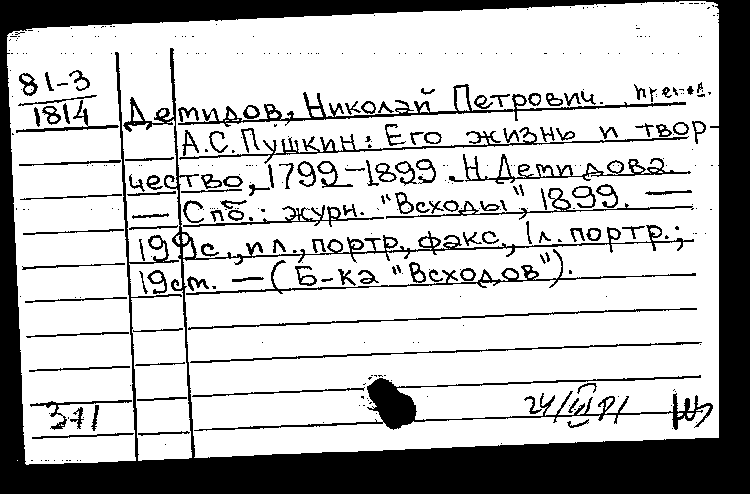 81-3
1814
Демидов, Николай Петрович. препод.
А.С. Пушкин: Его жизнь и твор-
чество, 1799-1899. Н. Демидова.
— Спб.: журн. "Всходы", 1899. —
199с., ил., портр., факс., 1л. портр.;
19см. — (Б-ка "Всходов").
371
24/III 81